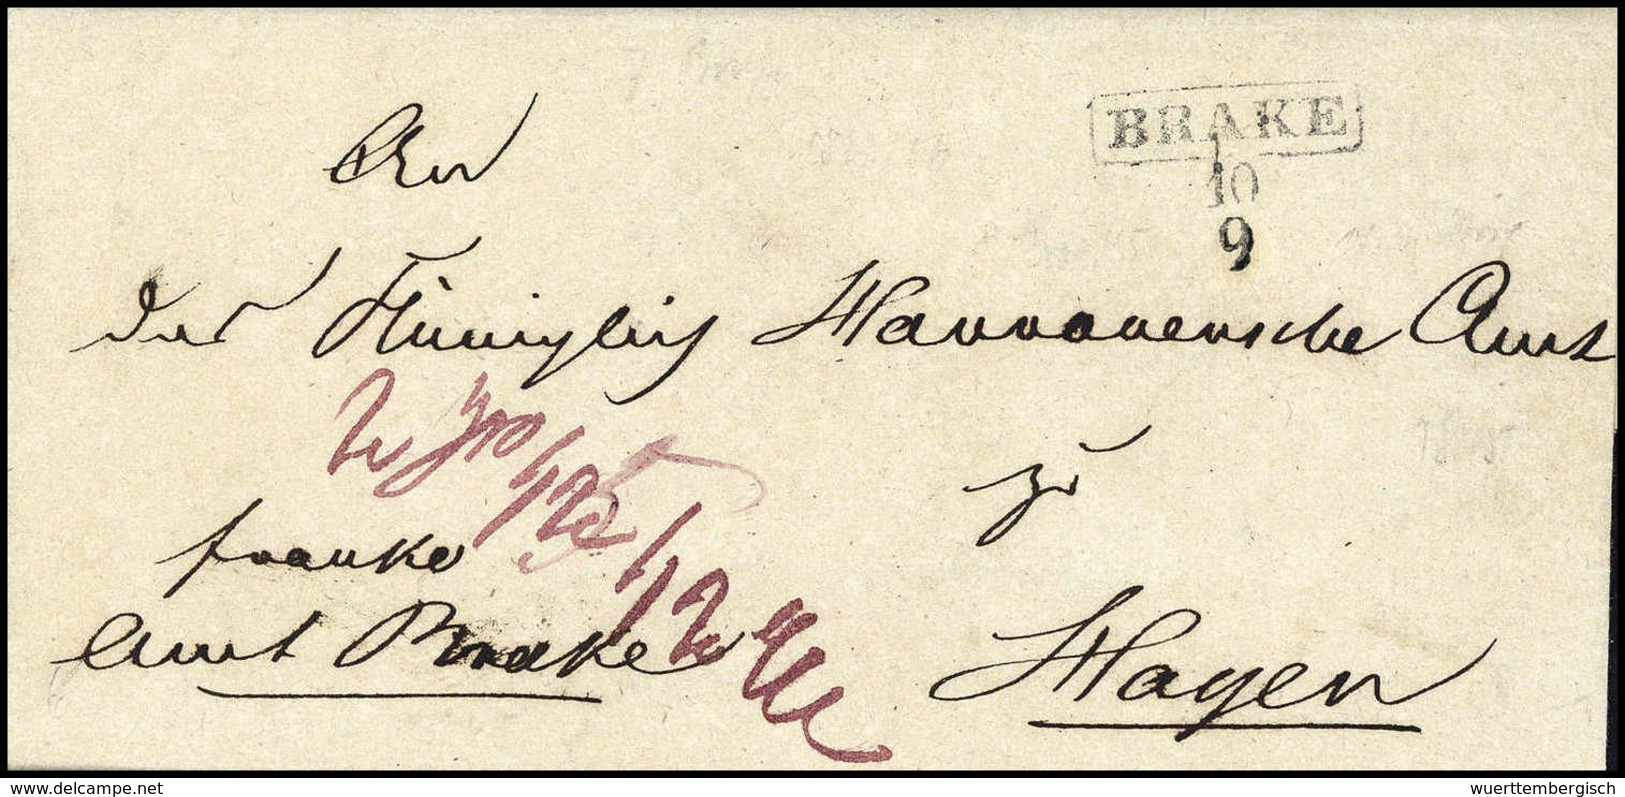 BRAKE
10
9
An
das Königlich Hannoversche Amt
zu
franko
Amt Brake
Hagen
delcampe.net
wuerttembergisch